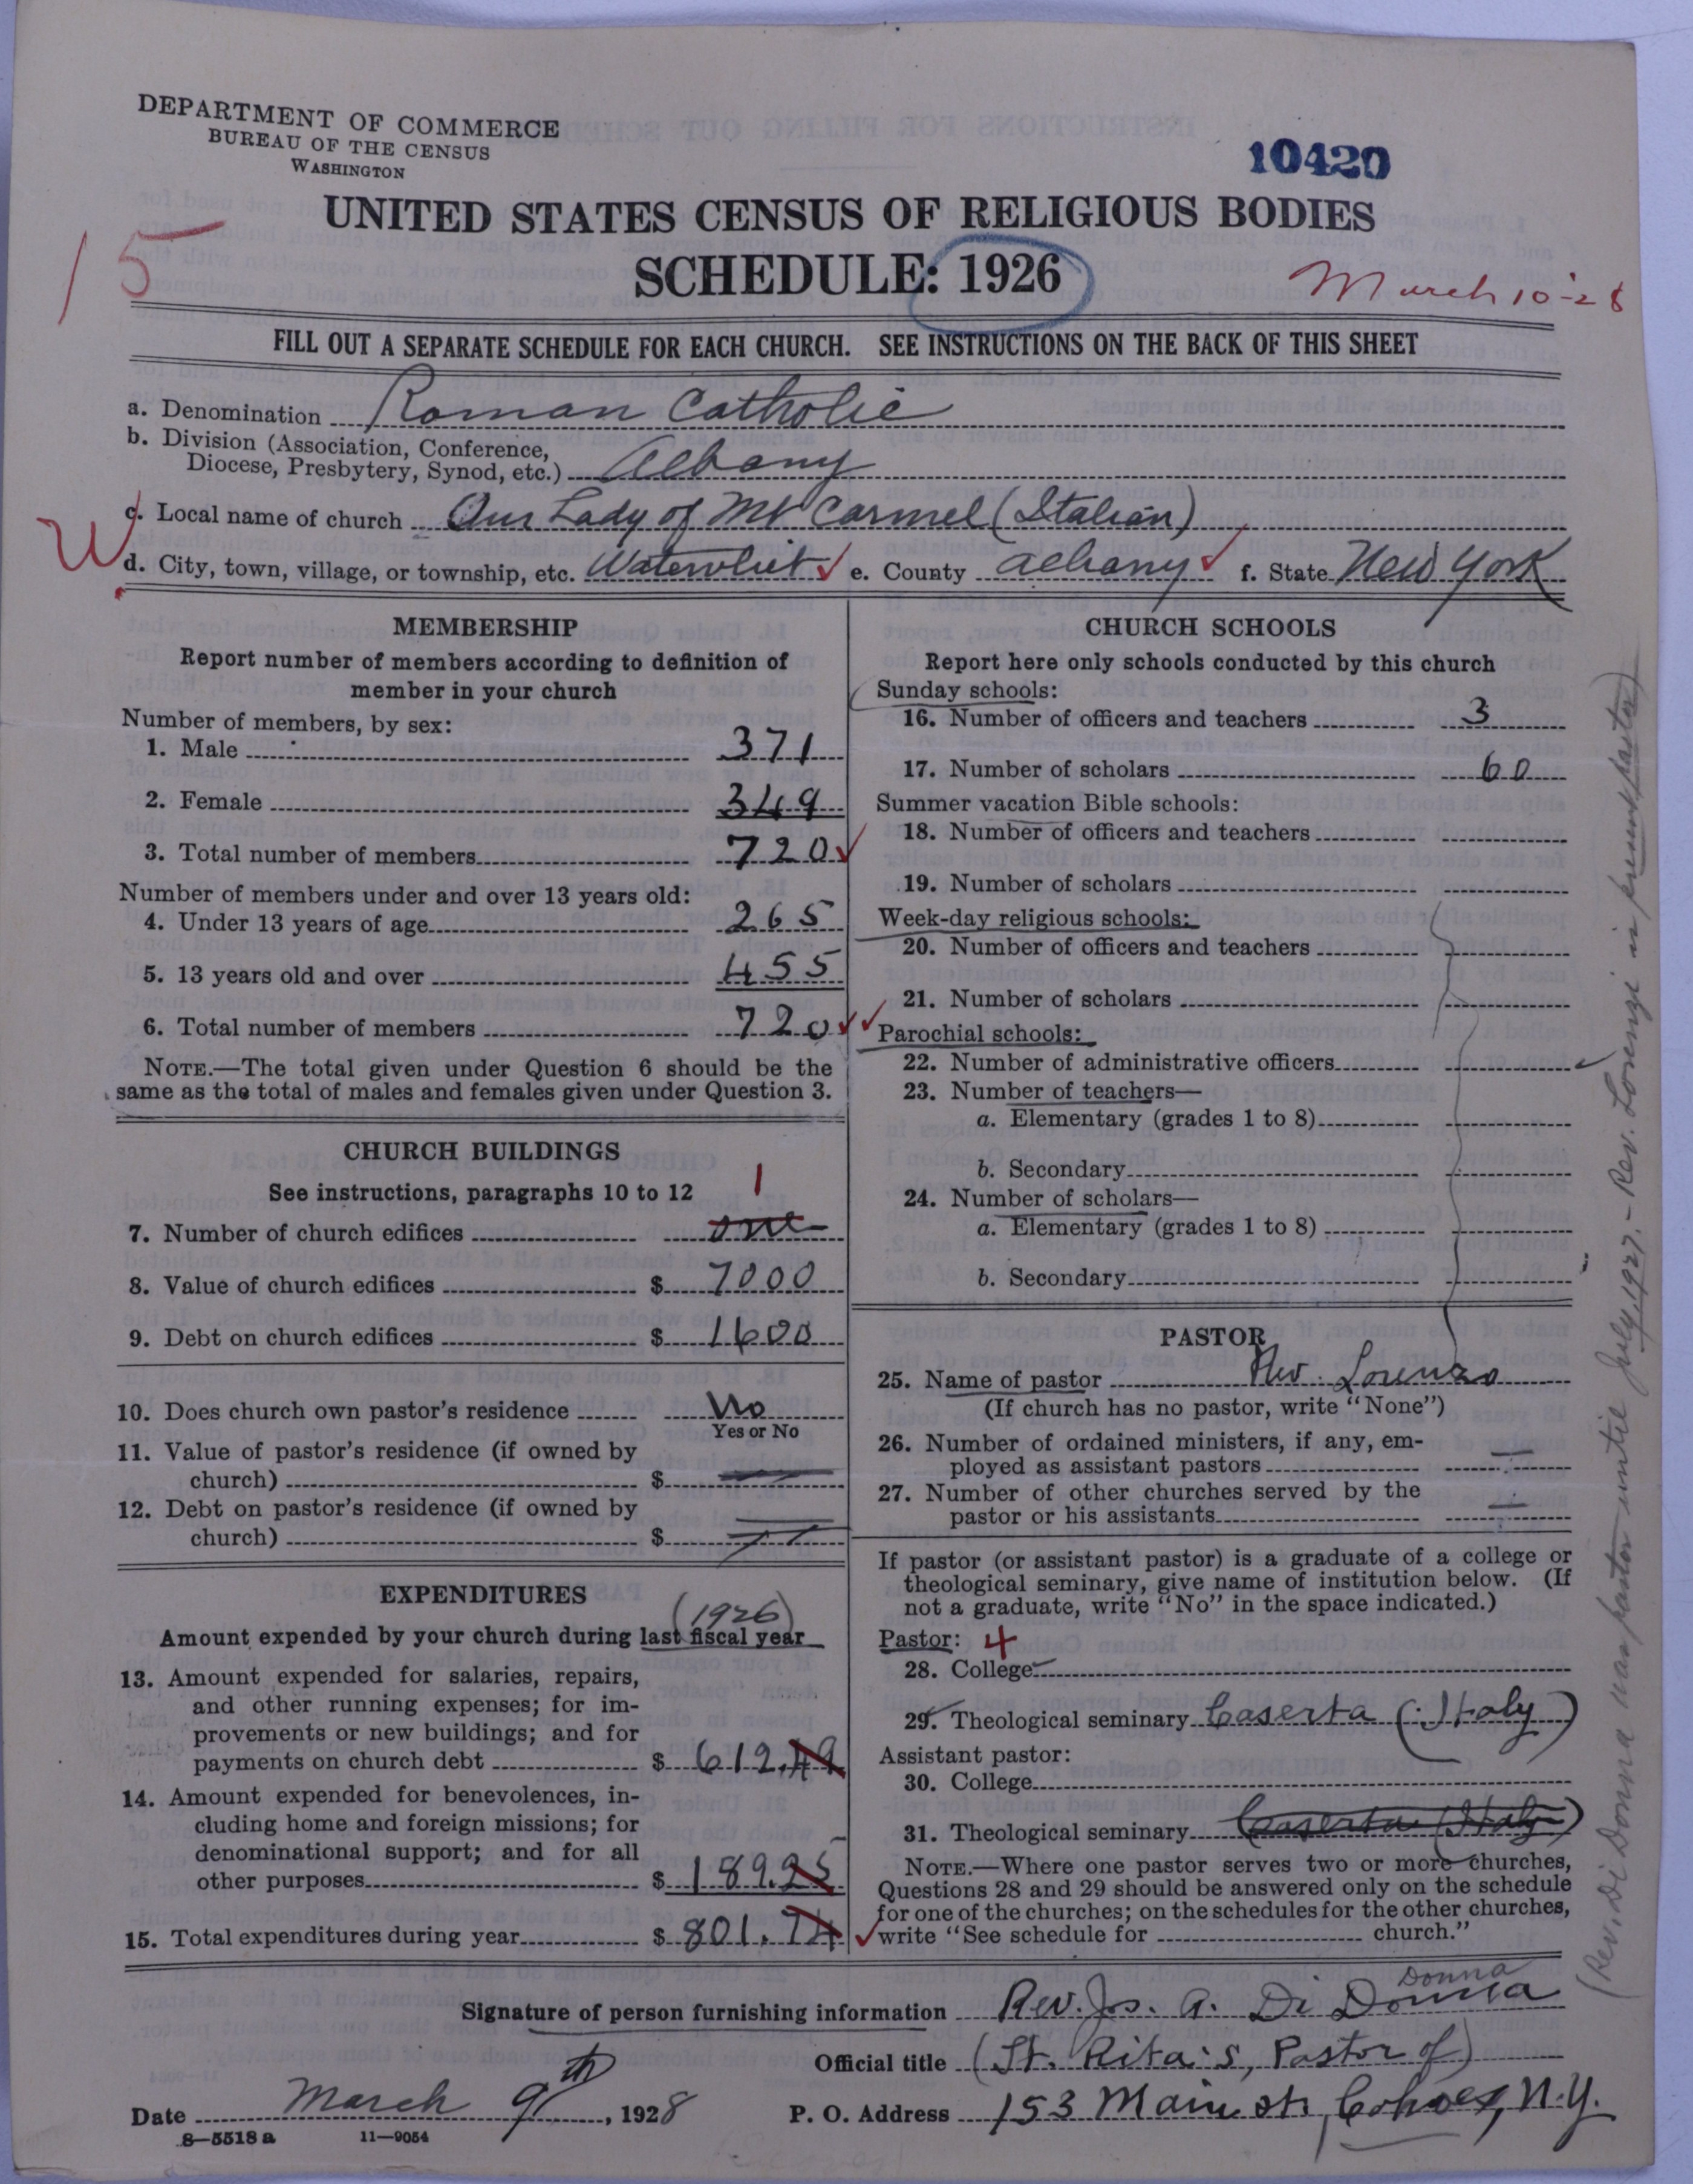 DEPARTMENT OF COMMERCE
BUREAU OF THE CENSUS
WASHINGTON
10420
UNITED STATES CENSUS OF RELIGIOUS BODIES
15
SCHEDULE: 1926
March 10-28
FILL OUT A SEPARATE SCHEDULE FOR EACH CHURCH. SEE INSTRUCTIONS ON THE BACK OF THIS SHEET
a. Denomination Roman Catholic
b. Division (Association, Conference,
Diocese, Presbytery, Synod, etc.) Albany
c. Local name of church Our Lady of Mt Carmel (Italian)
W
d. City, town, village, or township, etc. Watervliet e. County Albany f. State New York
MEMBERSHIP
Report number of members according to definition of
member in your church
Number of members, by sex:
1. Male 371
2. Female 349
3. Total number of members 720
Number of members under and over 13 years old:
4. Under 13 years of age 265
5. 13 years old and over 455
6. Total number of members 720
NOTE.—The total given under Question 6 should be the
same as the total of males and females given under Question 3.
CHURCH BUILDINGS
See instructions, paragraphs 10 to 12
1
7. Number of church edifices one
8. Value of church edifices $ 7000
9. Debt on church edifices $ 1600
10. Does church own pastor's residence No
Yes or No
11. Value of pastor's residence (if owned by
church) $
12. Debt on pastor's residence (if owned by
church) $
EXPENDITURES
(1926)
Amount expended by your church during last fiscal year
13. Amount expended for salaries, repairs,
and other running expenses; for im-
provements or new buildings; and for
payments on church debt $ 612.49
14. Amount expended for benevolences, in-
cluding home and foreign missions; for
denominational support; and for all
other purposes $ 189.25
15. Total expenditures during year $ 801.74
CHURCH SCHOOLS
Report here only schools conducted by this church
Sunday schools:
16. Number of officers and teachers 3
17. Number of scholars 60
Summer vacation Bible schools:
18. Number of officers and teachers
19. Number of scholars
Week-day religious schools:
20. Number of officers and teachers
21. Number of scholars
Parochial schools:
22. Number of administrative officers
23. Number of teachers—
a. Elementary (grades 1 to 8)
b. Secondary
24. Number of scholars—
a. Elementary (grades 1 to 8)
b. Secondary
PASTOR
25. Name of pastor Rev. Lorenzo
(If church has no pastor, write "None")
26. Number of ordained ministers, if any, em-
ployed as assistant pastors —
27. Number of other churches served by the
pastor or his assistants —
If pastor (or assistant pastor) is a graduate of a college or
theological seminary, give name of institution below. (If
not a graduate, write "No" in the space indicated.)
Pastor: 4
28. College
29. Theological seminary Caserta (Italy)
Assistant pastor:
30. College
31. Theological seminary Caserta (Italy)
NOTE.—Where one pastor serves two or more churches,
Questions 28 and 29 should be answered only on the schedule
for one of the churches; on the schedules for the other churches,
write "See schedule for church."
(Rev. Di Donna was pastor until July, 1927. - Rev. Lorenzi is present pastor)
Donna
Signature of person furnishing information Rev. Jos. A. Di Donna
Official title (St. Rita's, Pastor of)
Date March 9th, 1928 P. O. Address 153 Main st, Cohoes, N.Y.
8—5518 a 11—9054